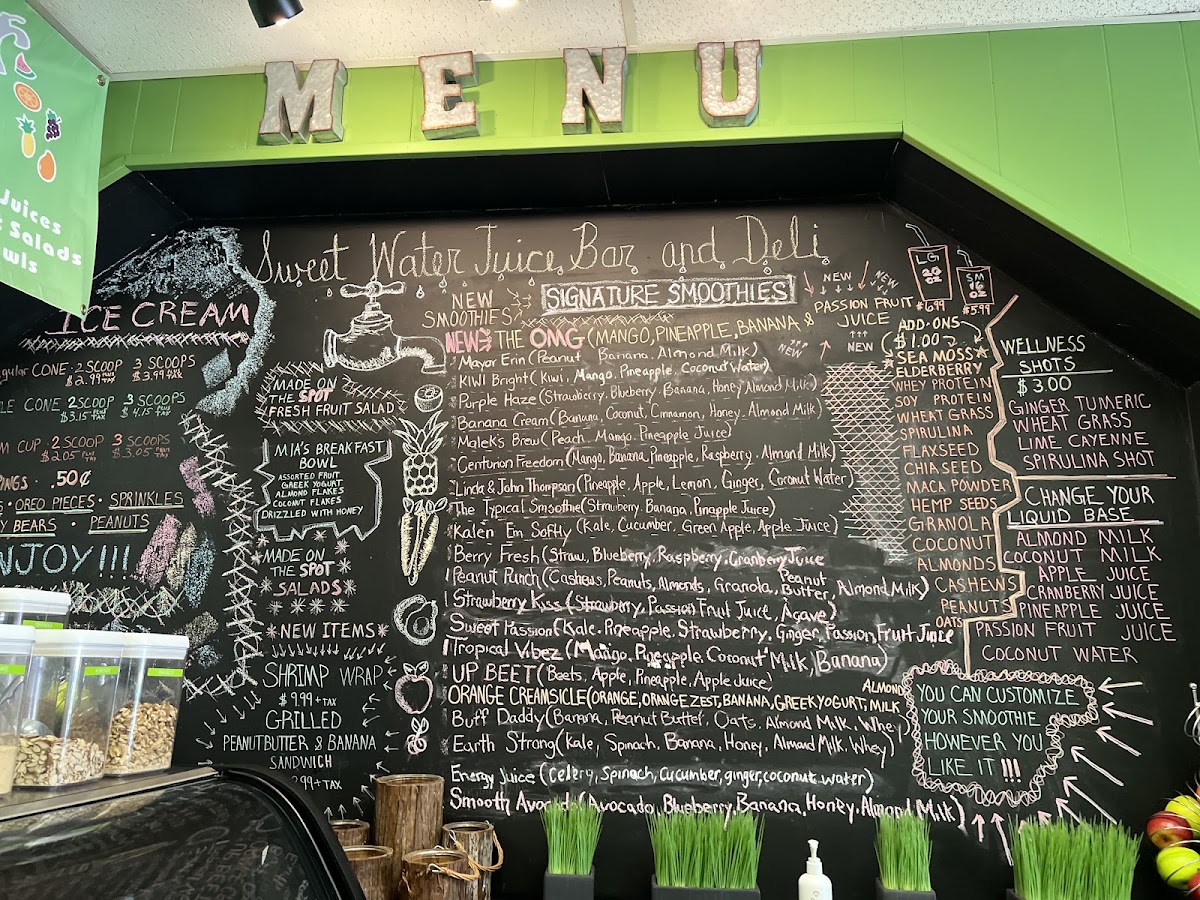 MENU
Juices
Salads
wls
Sweet Water Juice Bar and Deli
ICE CREAM
gular CONE · 2 SCOOP 3 SCOOPS
$2.99 PLUS TAX $3.99 PLUS TAX
LE CONE 2 SCOOP 3 SCOOPS
$3.15 PLUS TAX $4.15 PLUS TAX
M CUP · 2 SCOOP 3 SCOOPS
$2.05 PLUS TAX $3.05 PLUS TAX
PINGS · .50¢
· OREO PIECES · SPRINKLES
Y BEARS · PEANUTS
NJOY!!!
MADE ON
THE SPOT
FRESH FRUIT SALAD
MIA'S BREAKFAST
BOWL
ASSORTED FRUIT
GREEK YOGURT
ALMOND FLAKES
COCONUT FLAKES
DRIZZLED WITH HONEY
MADE ON
THE SPOT
SALADS
NEW ITEMS
SHRIMP WRAP
$9.99 + TAX
GRILLED
PEANUTBUTTER & BANANA
SANDWICH
99 + TAX
NEW
SMOOTHIES
SIGNATURE SMOOTHIES
NEW THE OMG (MANGO, PINEAPPLE, BANANA &
PASSION FRUIT
JUICE
NEW NEW
NEW NEW
Mayor Erin (Peanut Banana, Almond Milk)
KIWI Bright (Kiwi, Mango, Pineapple, Coconut Water)
Purple Haze (Strawberry, Blueberry, Banana, Honey Almond Milk)
Banana Cream (Banana, Coconut, Cinnamon, Honey, Almond Milk
Malek's Brew (Peach, Mango, Pineapple Juice)
Centurion Freedom (Mango, Banana, Pineapple, Raspberry, Almond Milk)
Linda & John Thompson (Pineapple, Apple, Lemon, Ginger, Coconut Water)
The Typical Smoothie (Strawberry, Banana, Pineapple Juice)
Kalen Em Softly (Kale, Cucumber, Green Apple, Apple Juice)
Berry Fresh (Straw, Blueberry, Raspberry, Cranberry Juice
Peanut Punch (Cashews, Peanuts, Almonds, Granola, Peanut Butter, Almond Milk)
Strawberry Kiss (Strawberry, Passion Fruit Juice, Agave)
Sweet Passion (Kale, Pineapple, Strawberry, Ginger, Passion Fruit Juice
Tropical Vibez (Mango, Pineapple, Coconut Milk, Banana)
UP BEET (Beets, Apple, Pineapple, Apple Juice)
ORANGE CREAMSICLE (ORANGE, ORANGE ZEST, BANANA, GREEK YOGURT, ALMOND MILK
Buff Daddy (Banana, Peanut Butter, Oats, Almond Milk, Whey)
Earth Strong (Kale, Spinach, Banana, Honey, Almond Milk, Whey)
Energy Juice (Celery, Spinach, Cucumber, ginger, coconut water)
Smooth Avocado (Avocado, Blueberry, Banana, Honey, Almond Milk)
LG
20
OZ
$6.99
SM
16
OZ
$5.99
ADD-ONS
($1.00)
SEA MOSS
ELDERBERRY
WHEY PROTEIN
SOY PROTEIN
WHEAT GRASS
SPIRULINA
FLAXSEED
CHIA SEED
MACA POWDER
HEMP SEEDS
GRANOLA
COCONUT
ALMONDS
CASHEWS
PEANUTS
OATS
WELLNESS
SHOTS
$3.00
GINGER TUMERIC
WHEAT GRASS
LIME CAYENNE
SPIRULINA SHOT
CHANGE YOUR
LIQUID BASE
ALMOND MILK
COCONUT MILK
APPLE JUICE
CRANBERRY JUICE
PINEAPPLE JUICE
PASSION FRUIT JUICE
COCONUT WATER
YOU CAN CUSTOMIZE
YOUR SMOOTHIE
HOWEVER YOU
LIKE IT!!!